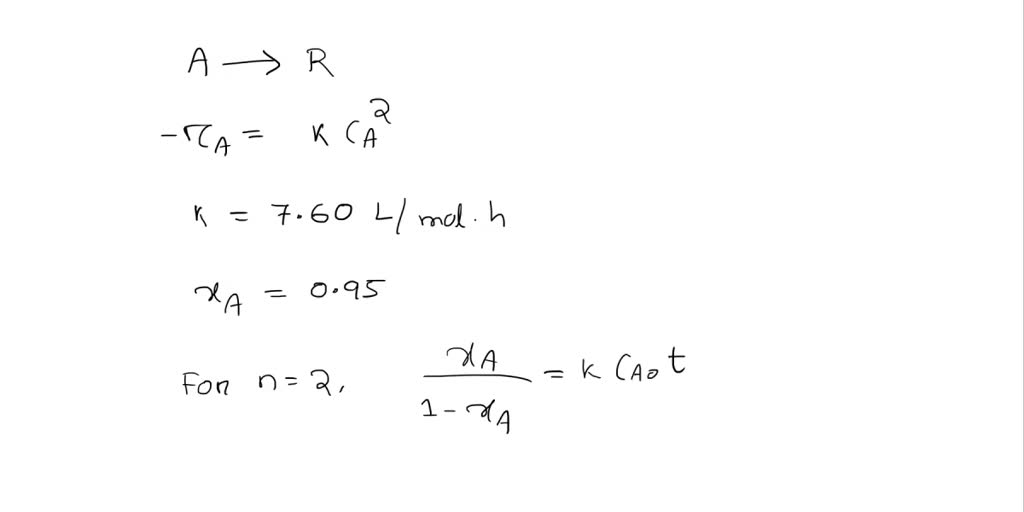 A ⟶ R
-r_A = K C_A^2
K = 7.60 L/mol.h
x_A = 0.95
For n=2, x_A / (1-x_A) = K C_A0 t